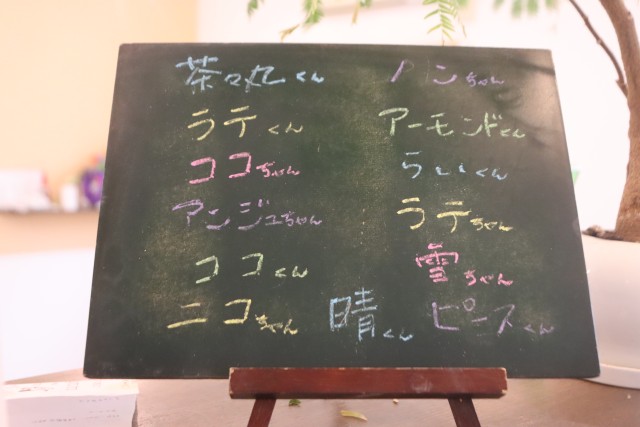 茶々丸くん ハンちゃん
ラテくん アーモンドくん
ココちゃん らいくん
アンジュちゃん ラテちゃん
ココくん 雪ちゃん
ニコちゃん 晴くん ピースくん